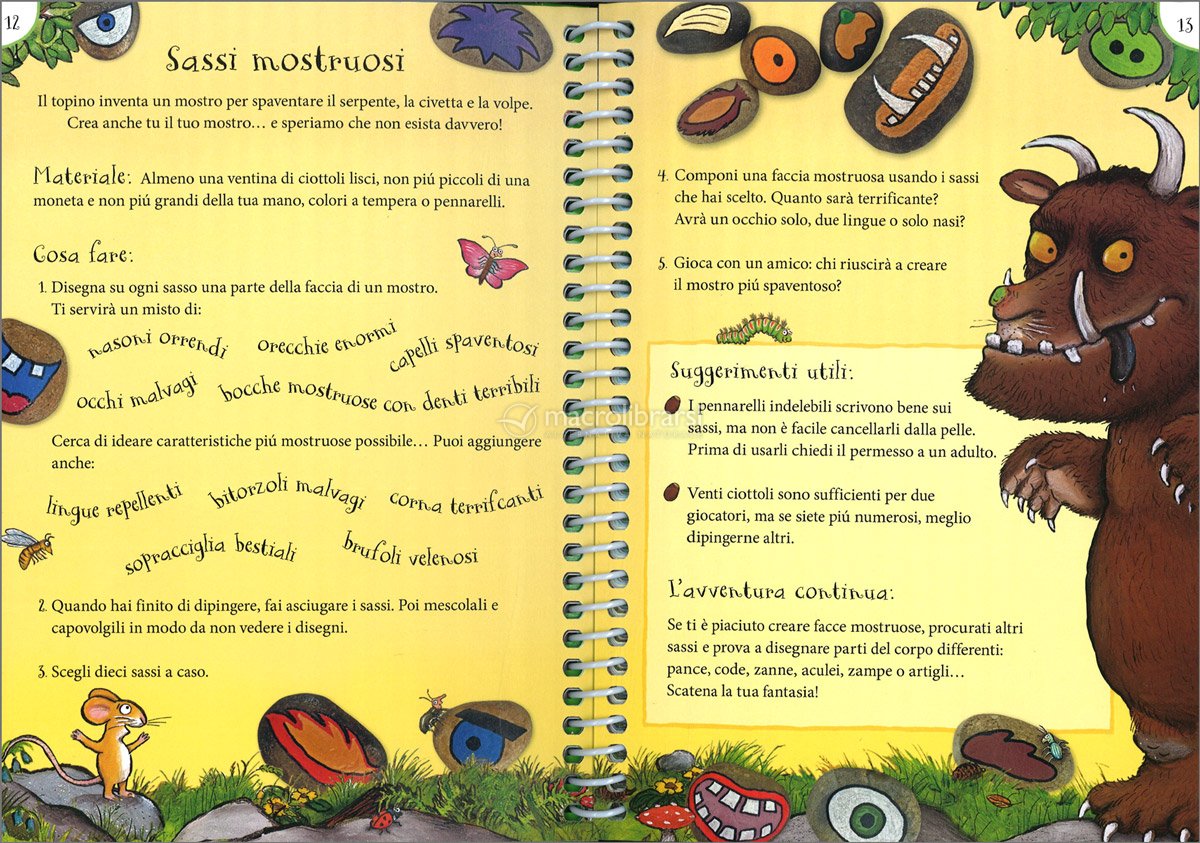 12
Sassi mostruosi
Il topino inventa un mostro per spaventare il serpente, la civetta e la volpe.
Crea anche tu il tuo mostro… e speriamo che non esista davvero!
Materiale: Almeno una ventina di ciottoli lisci, non piú piccoli di una
moneta e non piú grandi della tua mano, colori a tempera o pennarelli.
Cosa fare:
1. Disegna su ogni sasso una parte della faccia di un mostro.
Ti servirà un misto di:
nasoni orrendi
orecchie enormi
capelli spaventosi
occhi malvagi
bocche mostruose con denti terribili
Cerca di ideare caratteristiche piú mostruose possibile… Puoi aggiungere
anche:
lingue repellenti
bitorzoli malvagi
corna terrifcanti
sopracciglia bestiali
brufoli velenosi
2. Quando hai finito di dipingere, fai asciugare i sassi. Poi mescolali e
capovolgili in modo da non vedere i disegni.
3. Scegli dieci sassi a caso.
13
4. Componi una faccia mostruosa usando i sassi
che hai scelto. Quanto sarà terrificante?
Avrà un occhio solo, due lingue o solo nasi?
5. Gioca con un amico: chi riuscirà a creare
il mostro piú spaventoso?
Suggerimenti utili:
I pennarelli indelebili scrivono bene sui
sassi, ma non è facile cancellarli dalla pelle.
Prima di usarli chiedi il permesso a un adulto.
Venti ciottoli sono sufficienti per due
giocatori, ma se siete piú numerosi, meglio
dipingerne altri.
L'avventura continua:
Se ti è piaciuto creare facce mostruose, procurati altri
sassi e prova a disegnare parti del corpo differenti:
pance, code, zanne, aculei, zampe o artigli…
Scatena la tua fantasia!
macrolibrarsi